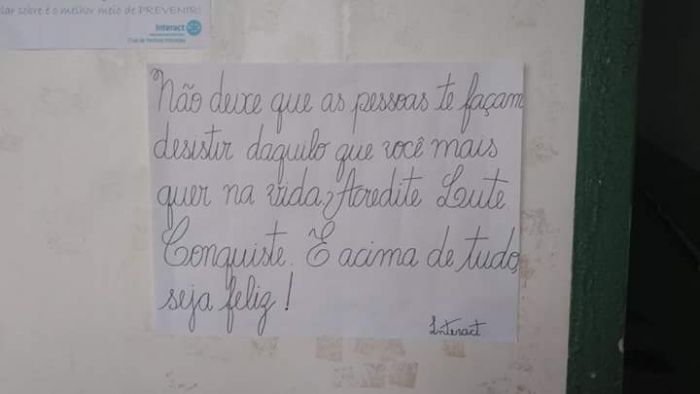 lar sobre é o melhor meio de PREVENIR!
Interact
Não deixe que as pessoas te façam
desistir daquilo que você mais
quer na vida, Acredite Lute
Conquiste. E acima de tudo,
seja feliz!
Interact